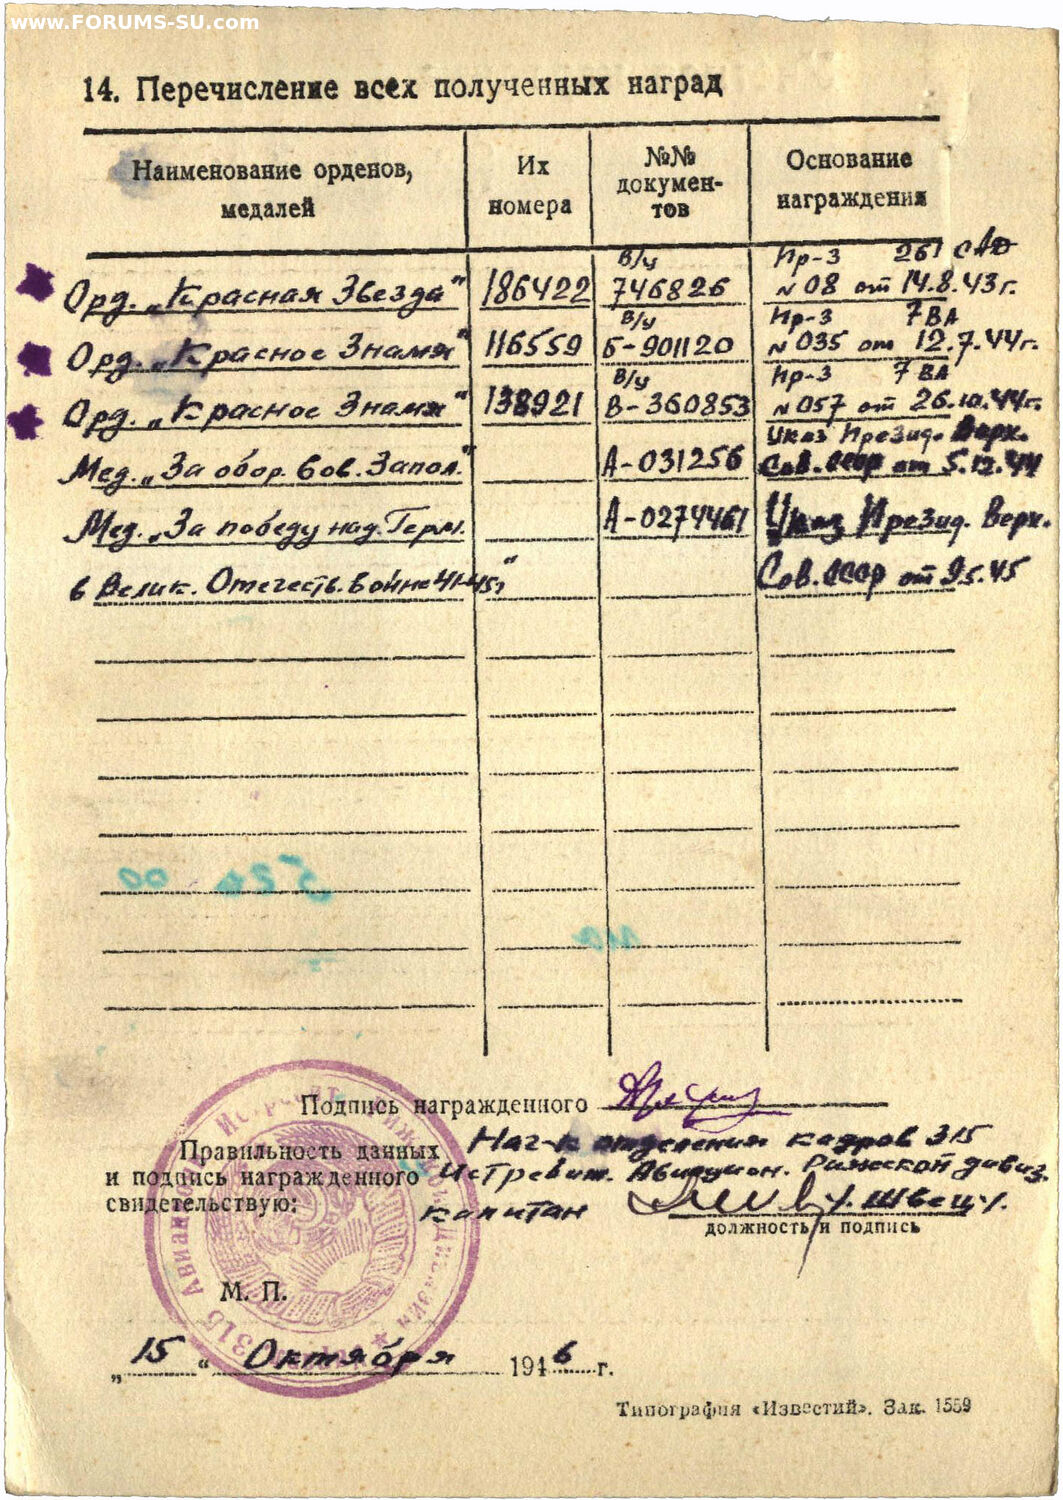 www.FORUMS-SU.com
14. Перечисление всех полученных наград
Наименование орденов, медалей
Их номера
№№ докумен-тов
Основание награждения
В/ч Пр-з 261 САД
Орд. „Красная Звезда" 186422 746826 № 08 от 14.8.43г.
В/ч Пр-з 7 ВА
Орд. „Красное Знамя" 116559 Б-901120 № 035 от 12.7.44г.
В/ч Пр-з 7 ВА
Орд. „Красное Знамя" 138921 В-360853 № 057 от 26.10.44г.
Указ Презид. Верх.
Мед. „За обор. Сов. Запол." А-031256 Сов. СССР от 5.12.44
Мед. „За победу над Герм. А-0274461 Указ Презид. Верх.
в Велик. Отечеств. войне 41-45г" Сов. СССР от 9.5.45
Подпись награжденного
Правильность данных Нач-к отделения кадров 315
и подпись награжденного Истребит. Авиацион. Рижской дивиз.
свидетельствую: капитан /. Швец /.
должность и подпись
М. П.
„15" Октября 1946 г.
Типография «Известий». Зак. 1559